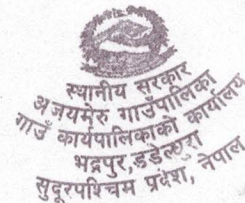 स्थानीय सरकार
अजयमेरु गाउँपालिका
गाउँ कार्यपालिकाको कार्यालय
भद्रपुर,डडेल्धुरा
सुदूरपश्चिम प्रदेश, नेपाल